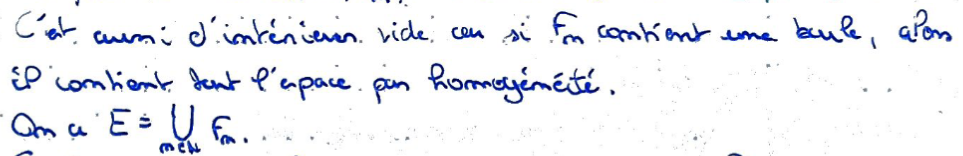 C'est aussi d'intérieur vide car si Fn contient une boule, alors
il contient tout l'espace par homogénéité.
On a E = ⋃ Fn.
n∈ℕ